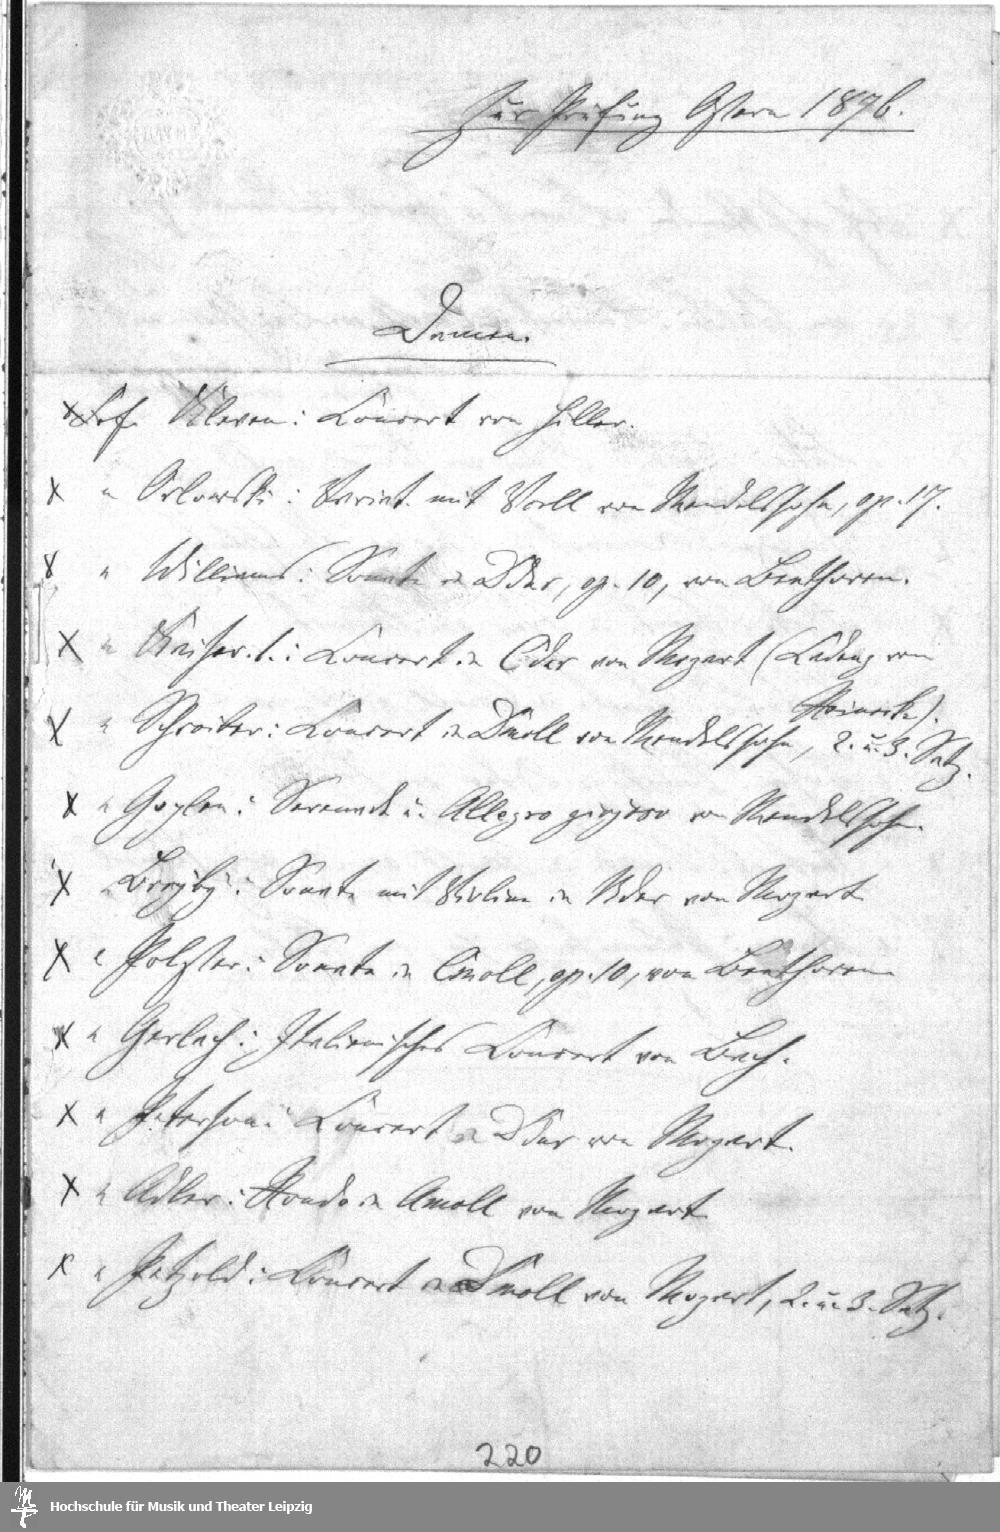 Zur Prüfung Ostern 1876.
Damen.
x Frl. Kleven: Concert von Hiller.
x " Orlowski: Variat. mit Vcell von Mendelssohn, op. 17.
x " Williams: Sonate in Ddur, op. 10, von Beethoven.
x " Kaiser. I.: Concert in Cdur von Mozart (Cadenz von
Reinecke).
x " Schreiber: Concert in Dmoll von Mendelssohn, 2. u. 3. Satz.
x " : Serenade u. Allegro giojoso von Mendelssohn.
x " : Sonate mit Violine in Bdur von Mozart
x " Polster: Sonate in Cmoll, op. 10, von Beethoven
x " Gerlach: Italienisches Concert von Bach.
x " Peterson: Concert in Ddur von Mozart.
x " Adler: Rondo in Amoll von Mozart.
x " Petzold: Concert in Dmoll von Mozart, 2. u. 3. Satz.
220
Hochschule für Musik und Theater Leipzig